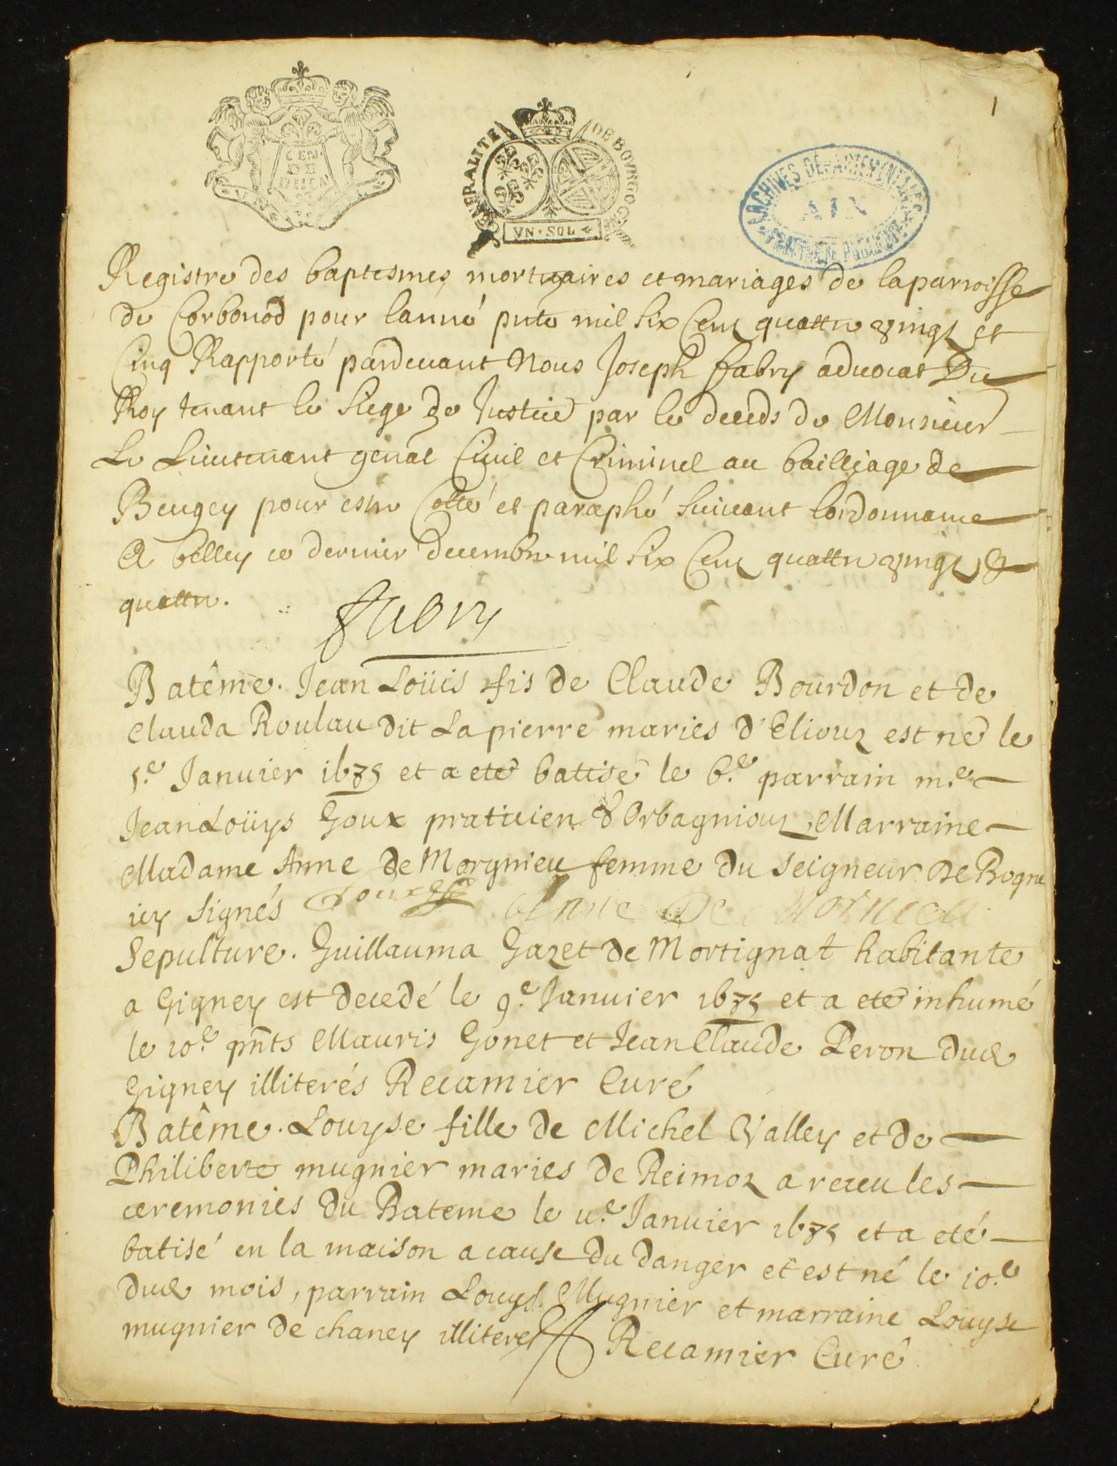 1
CEN
DE
GENERALITE DE BOVRGOG
VN · SOL
ARCHIVES DEPARTEMENTALES
AIN
Registre des baptesmes mortuaires et mariages de la parroisse
de Corbonod pour lanné pnte mil six Cent quattre vingt et
Cinq Rapporté pardeuant Nous Joseph fabry aduocat Du
Roy tenant le siege de Justice par le deceds de Monsieur
Le Lieutenant genal Ciuil et Criminel au bailliage de
Beugey pour estre Cotté et paraphé suiuant lordonnance
A belley ce dernier decembre mil six Cent quattre vingt &
quattre.
fabry
Batême. Jean Loüis fis de Claude Bourdon et de
Clauda Roulau dit La pierre maries d'Eliouz est né le
5.e Janvier 1685 et a eté batisé le 6.e parrain m.e
Jean Loüys Goux praticien d'Orbagnouz Marraine
Madame Anne de Morgnieu femme du seigneur De Bogne
iey signés Goux Anne De Mornieu
Sepulture. Guillauma Gazet de Mortignat habitante
a Gigney est decedé le 9.e Janvier 1685 et a eté inhumé
le 10.e pnts Mauris Gonet et Jean Claude Peron dud
Gigney illiterés Recamier Curé
Batême. Louyse fille de Michel Valley et de
Philiberte mugnier maries de Reimoz a receu les
ceremonies du Bateme le 11.e Janvier 1685 et a eté
batisé en la maison a cause du danger et est né le 10.e
dud mois, parrain Louys Mugnier et marraine Louyse
mugnier de chaney illiteres Recamier Curé